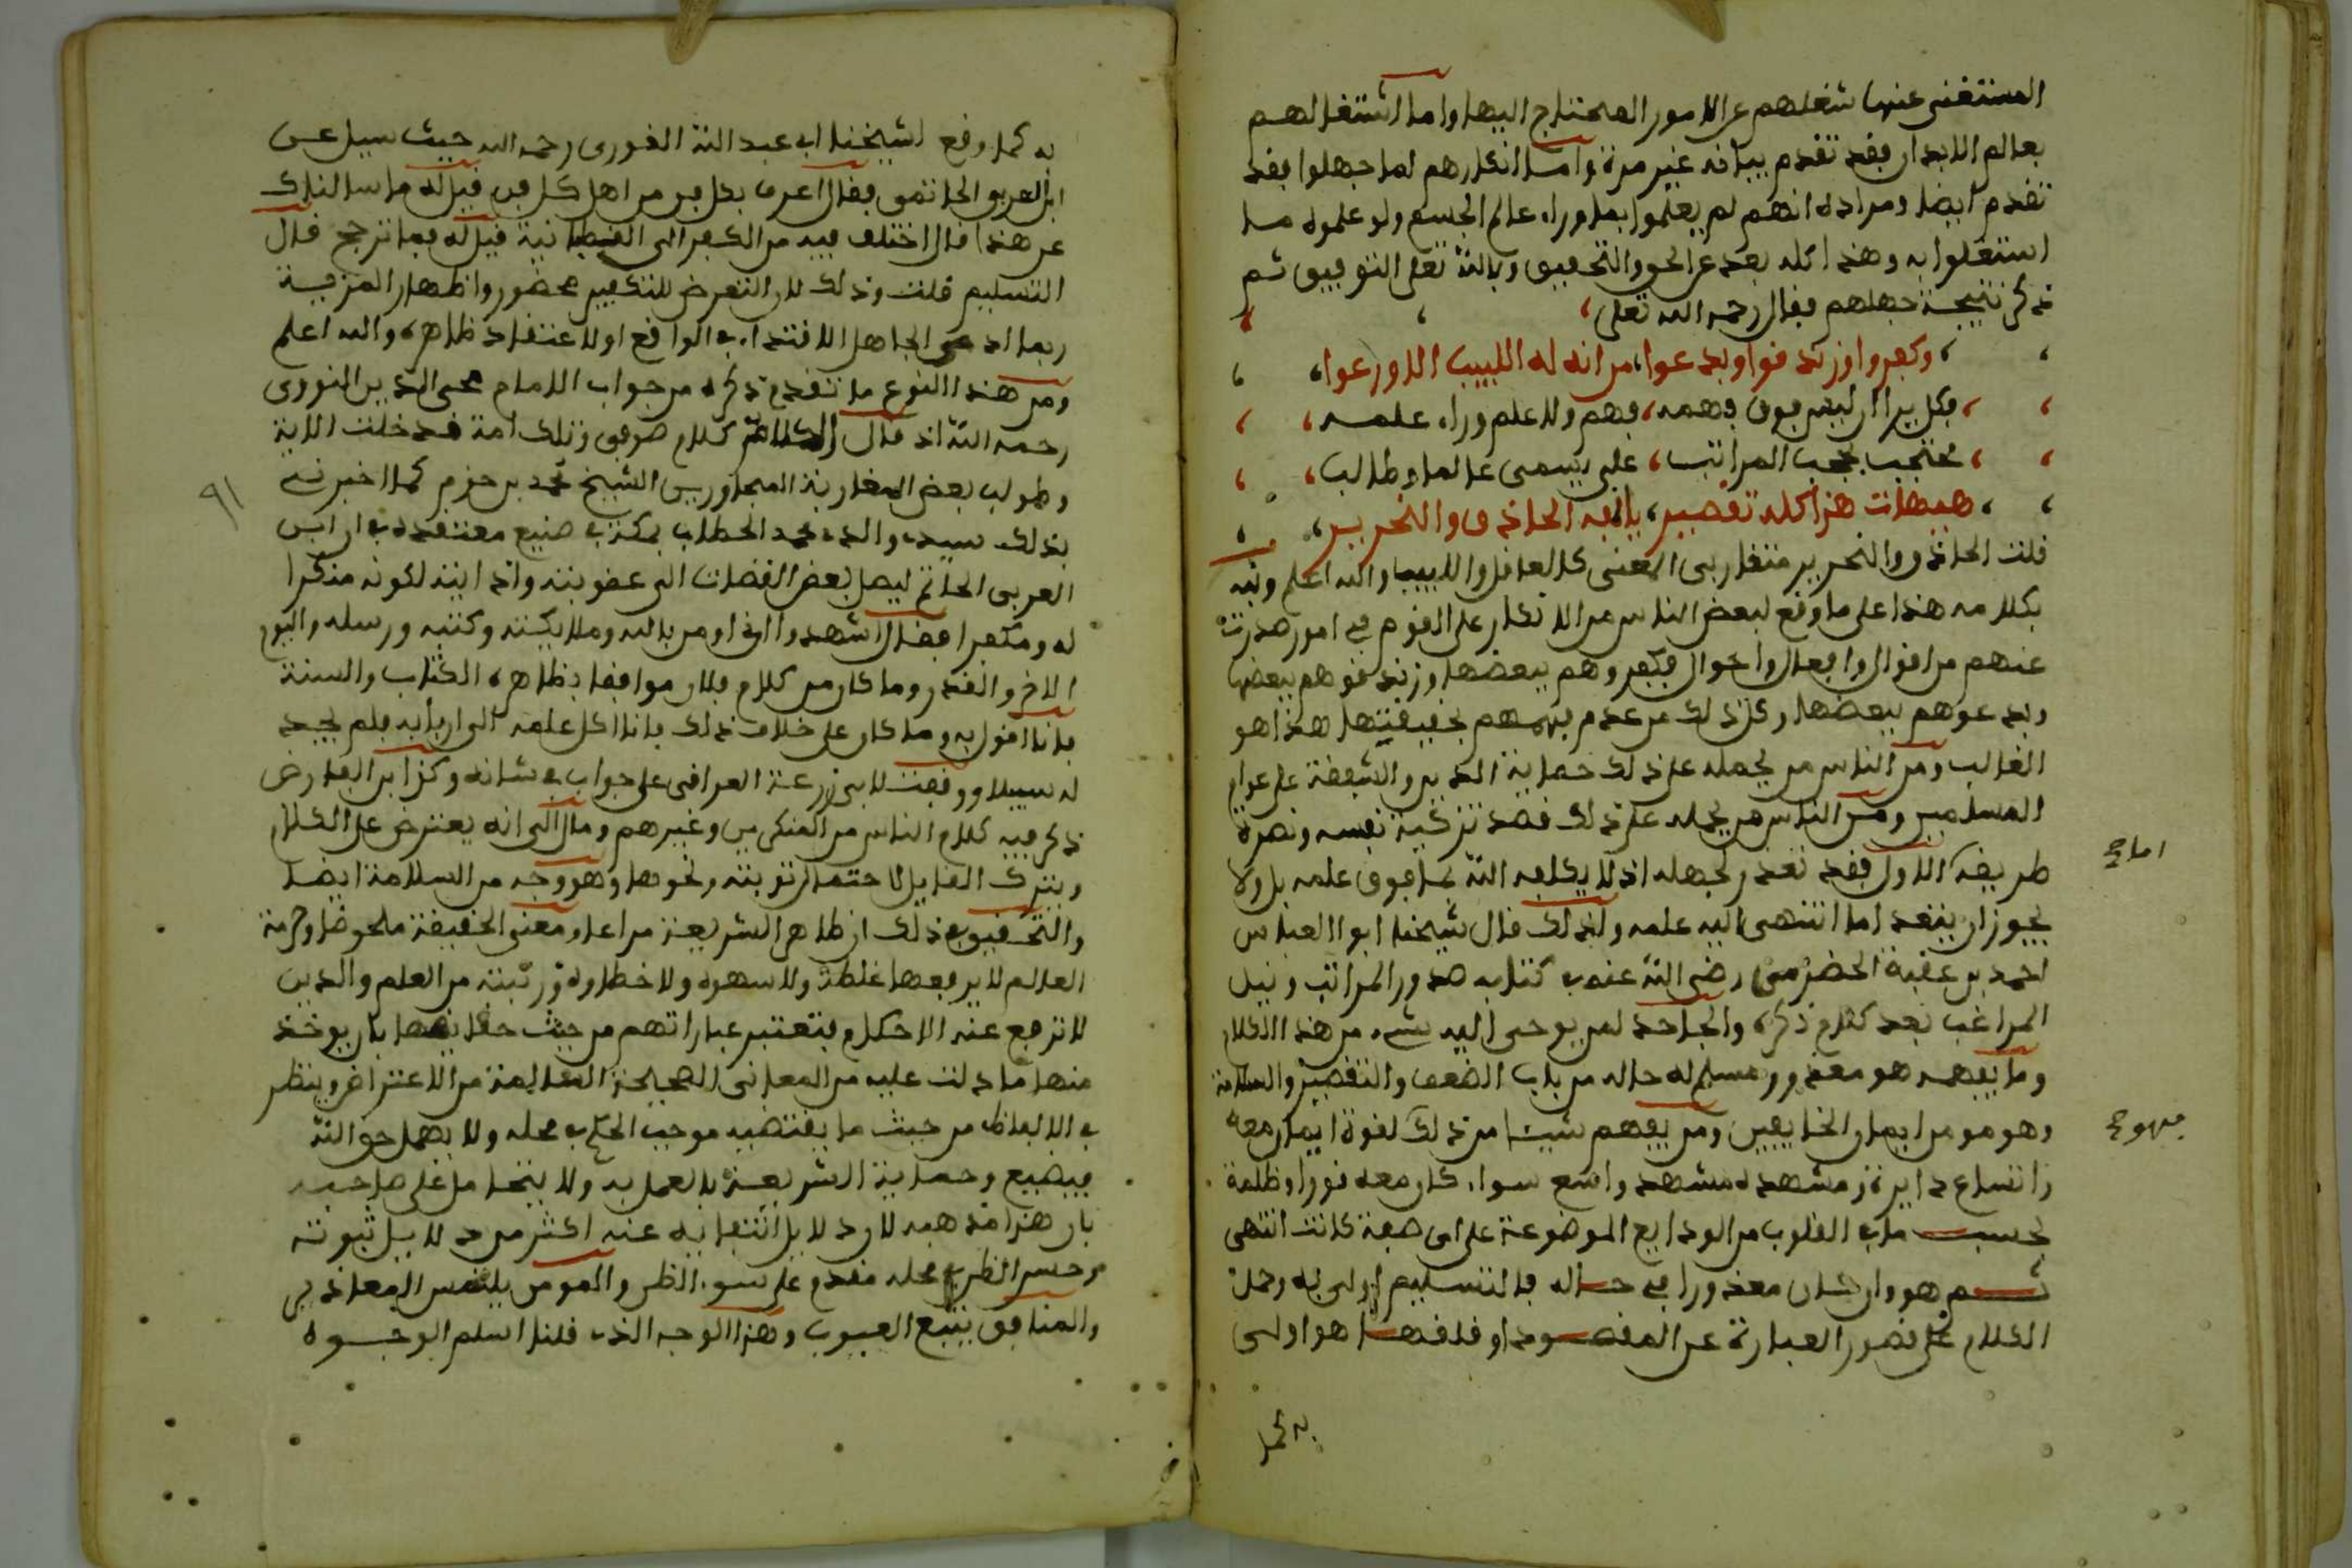 المستغنى عنها شغلهم عن الامور المحتاج اليها واما اشتغالهم
بعالم الابدان فقد تقدم بيانه غير مرة واما انكارهم لما جهلوا فقد
تقدم ايضا ومراده انهم لم يعلموا بما وراء عالم الجسم ولو علموه ما
اشتغلوا به وهذا كله بعد عن الحق والتحقيق وبالله تعلى التوفيق ثم
ذكر نتيجة جهلهم فقال رحمه الله تعلى
وكفروا وزندقوا وبدعوا من انه له اللبيب الاورعوا
وكل يرا ان ليس فوق فهمه فهم ولا علم وراء علمه
محتجب بحجب المراتب على يسمى عالما وطالب
هيهات هذا كله تقصير يانفه الحاذق والنحرير
قلت الحاذق والنحرير متقاربى المعنى كالعاقل واللبيب والله اعلم ونبه
بكلامه هذا على ما وقع لبعض الناس من الانكار على القوم في امور صدرت
عنهم من اقوال وافعال واحوال فكفروهم ببعضها وزندقوهم ببعضها
وبدعوهم ببعضها وكل ذلك من عدم فهمهم بحقيقتها هذا هو
الغالب ومن الناس من يحمله على ذلك حماية الدين والشفقة على عوام
المسلمين ومن الناس من يحمله على ذلك قصد تزكية نفسه ونصرة
طريقه اما الاول فقد تعذر لجهله اذ لا يكلفه الله بما فوق علمه بل ولا
يجوز ان يتعدا ما انتهى اليه علمه ولذلك قال شيخنا ابو العباس
احمد بن عقبة الحضرمى رضي الله عنه في كتابه صدور المراتب ونيل
المراغب بعد كلام ذكره والجاحد لمن يوحى اليه شيء من هذا الكلام
وما يفهمه هو معذور ومسلم له حاله من باب الضعف والتقصير والسلامة
وهو مومن ايمان الخايفين ومن يفهم شيئا من ذلك فهو لقوة ايمان معه
واتساع دايرة ومشهده مشهد واسع سواء كان معه نورا وظلمة
بحسب ما في القلوب من الودايع الموضوعة على اي صفة كانت انتهى
ثم هو وان كان معذورا في حاله فالتسليم اولى به وحمل
الكلام على قصور العبارة عن المقصود او فلقها هو اولى
به كما
له كما وقع لشيخنا ابي عبد الله القورى رحمه الله حيث سيل عن
ابن العربي الحاتمي فقال اعرف بكل فن من اهل كل فن قيل له ما سالناك
عن هذا قال اختلف فيه من الكفر الى القطبانية قيل له فما ترجح قال
التسليم قلت وذلك لان التعرض للتكفير محضور واظهار المزية
ربما ادعى الجاهل الاقتداء في الواقع او لاعتقاد ظاهره والله اعلم
ومن هذا النوع ما تقدم ذكره من جواب الامام محي الدين النووى
رحمه الله اذ قال الكلام كلام صوفى وتلك امة قد خلت الاية
وطولب بعض المغاربة المجاورين الشيخ محمد بن حزم كما اخبرني
بذلك سيدي والدي محمد الحطاب بمكة في صنيع معتقده في ابن
العربي الحاتمي ليصل بعض القضات الى عقوبته واذايته لكونه منكرا
له ومكفرا فقال اشهدوا اني اومن بالله وملايكته وكتبه ورسله واليوم
الاخر والقدر وما كان من كلام فلان موافقا بظاهره الكتاب والسنة
فانا اقول به وما كان على خلاف ذلك فانا اكل علمه الى اربابه فلم يجد
له سبيلا ووقفت لابي زرعة العراقي على جواب في شانه وكذا ابن الفارض
ذكر فيه كلام الناس من المنكرين وغيرهم ومال الى انه يعترض على الكلام
ويترك القايل لاحتمال توبته ونحوها وهو وجه من السلامة ايضا
والتحقيق في ذلك ان ظاهر الشريعة مراعا ومعنى الحقيقة ملحوظ وحرمة
العالم لا يرفعها غلطة ولا سهوه ولا خطاوه ورتبته من العلم والدين
لا ترفع عنه الاحكام فتعتبر عباراتهم من حيث حقايقها بان يوخذ
منها ما دلت عليه من المعانى الصحيحة السالمة من الاعتراض وينظر
في الالفاظ من حيث ما يقتضيه موجب الحكم في محله ولا يهمل حق الله
فيضيع وحماية الشريعة بالعمل به ولا يتحامل على صاحبه
بان هذا مذهبه لان دلايل انتفايه عنه اكثر من دلايل ثبوته
وحسن الظن في محله مقدم على سوء الظن والمومن يلتمس المعاذير
والمنافق يتبع العيوب وهذا الوجه الذي قلنا اسلم الوجوه
٩١
اما صح
فهو صح